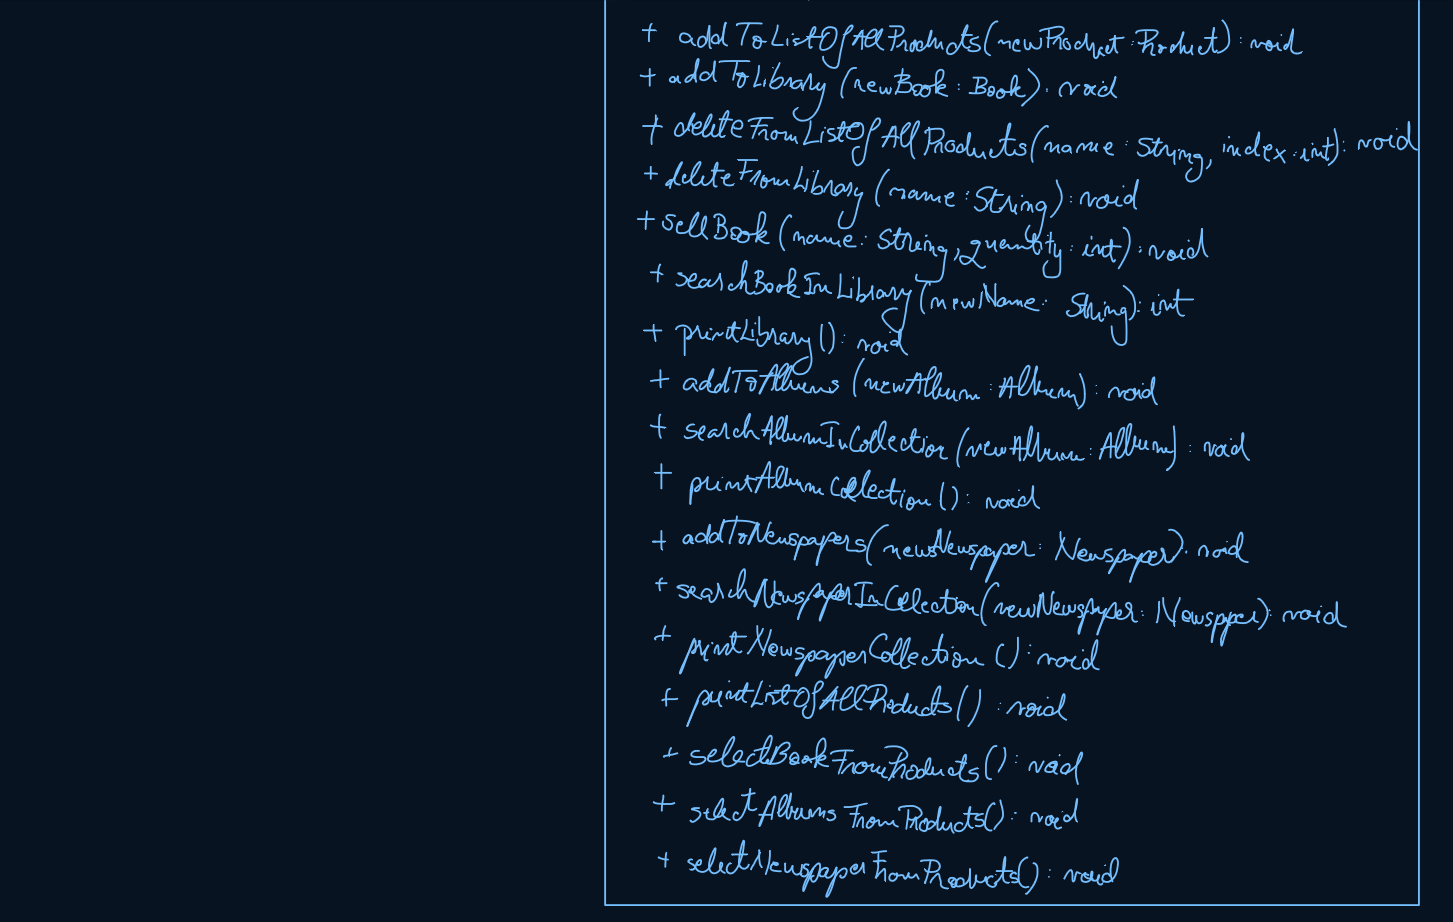 + addToListOfAllProducts(newProduct : Product) : void
+ addToLibrary (newBook : Book) : void
+ deleteFromListOfAllProducts(name : String, index : int) : void
+ deleteFromLibrary (name : String) : void
+ sellBook (name : String, quantity : int) : void
+ searchBookInLibrary (newName : String) : int
+ printLibrary () : void
+ addToAlbums (newAlbum : Album) : void
+ searchAlbumInCollection (newAlbum : Album) : void
+ printAlbumCollection () : void
+ addToNewspapers(newNewspaper : Newspaper) : void
+ searchNewspaperInCollection(newNewspaper : Newspaper) : void
+ printNewspaperCollection () : void
+ printListOfAllProducts () : void
+ selectBookFromProducts () : void
+ selectAlbumsFromProducts() : void
+ selectNewspaperFromProducts() : void